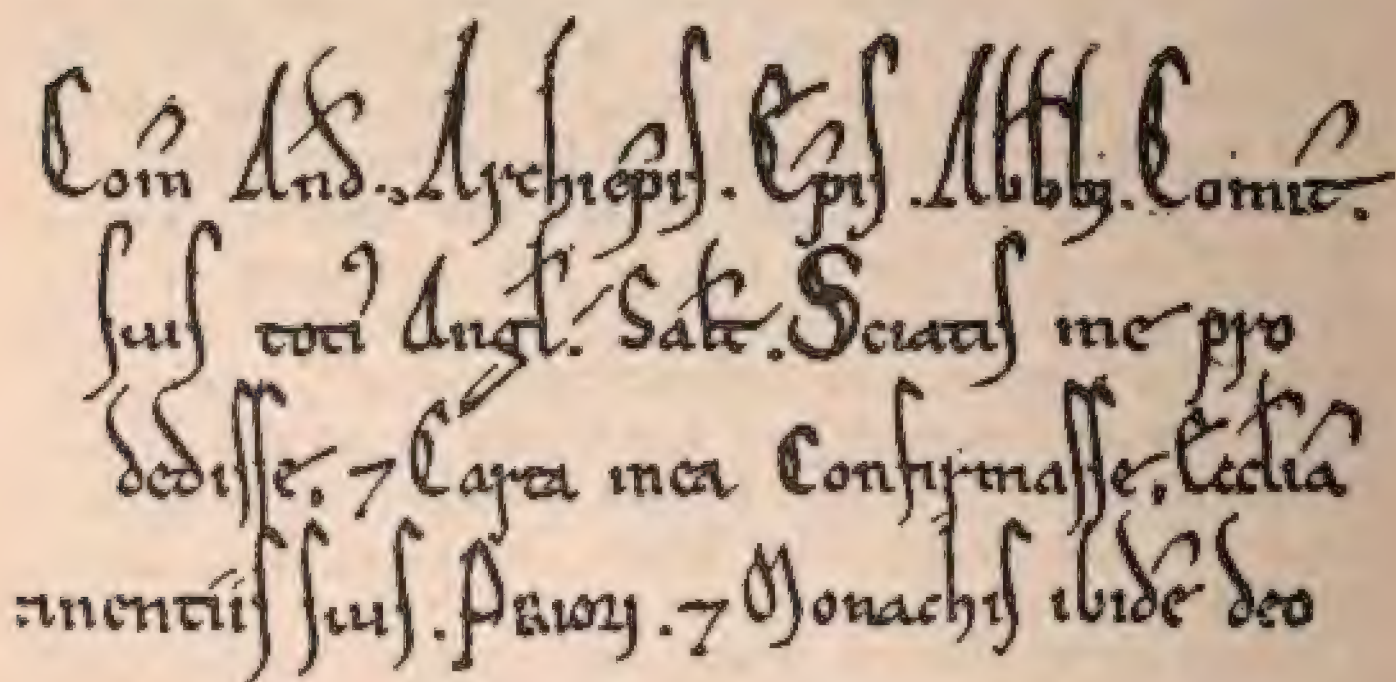 Com̃ And̃., Archiep̃is. Ep̃is. Abb̃bȝ. Comit̃.
suis toti Angl̃. Salt̃. Sciatis me pro
dedisse. ⁊ Carta mea Confirmasse. Eccl̃iã
tinentiis suis. Priori. ⁊ Monachis ibidẽ deo